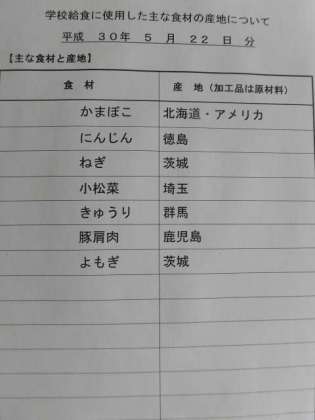 学校給食に使用した主な食材の産地について
平成 30年 5 月 22 日 分
【主な食材と産地】
食 材 産 地（加工品は原材料）
かまぼこ 北海道・アメリカ
にんじん 徳島
ねぎ 茨城
小松菜 埼玉
きゅうり 群馬
豚肩肉 鹿児島
よもぎ 茨城